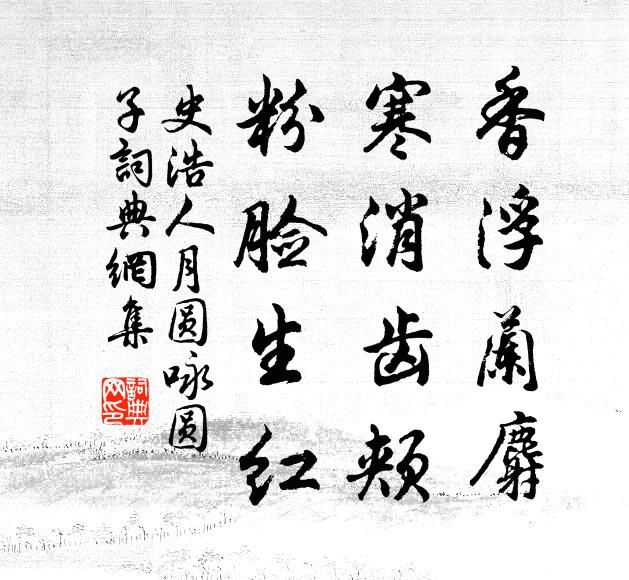 香浮蘭麝
寒消齿颊
粉脸生红
史浩人月圆咏圆
子詞典網集
詞典
网印